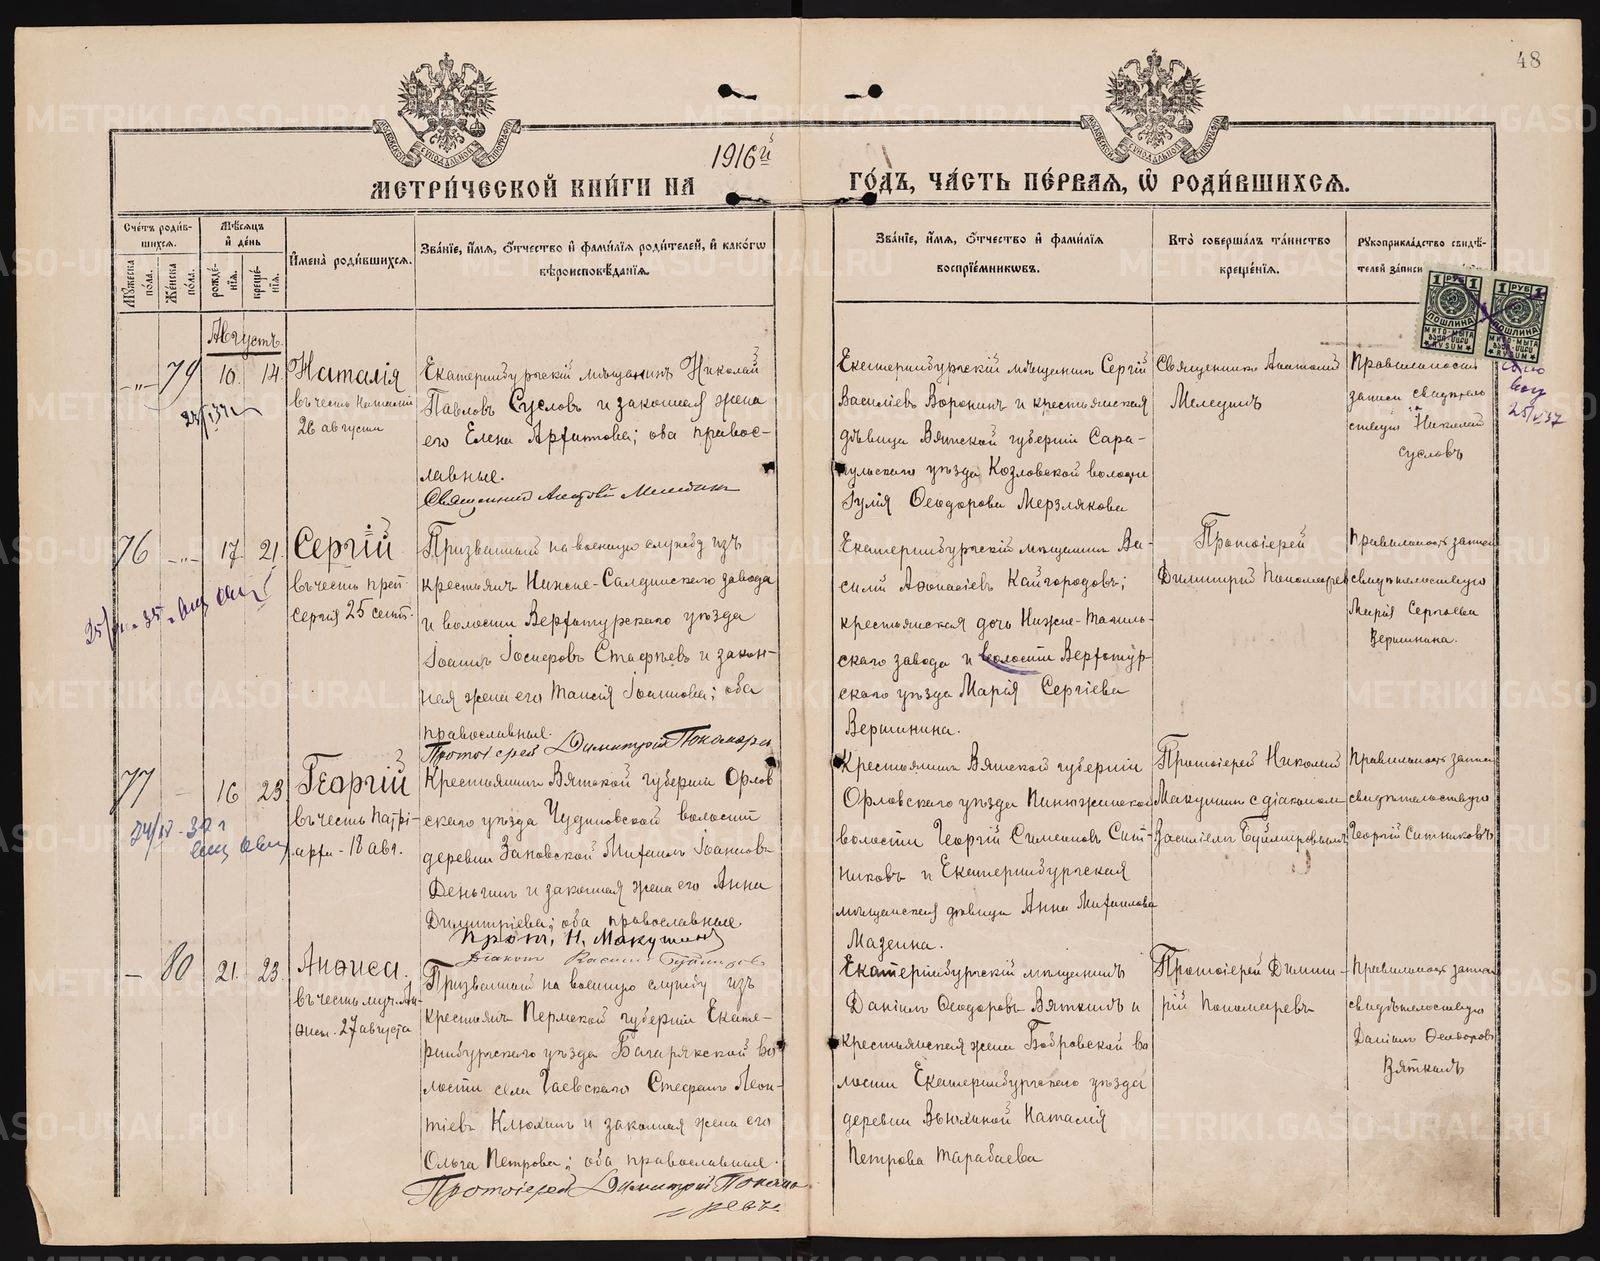 48
МОСКОВСКОЙ СѴНОДАЛЬНОЙ ТИПОГРАФІИ
МОСКОВСКОЙ СѴНОДАЛЬНОЙ ТИПОГРАФІИ
МЕТРИ́ЧЕСКОЙ КНИ́ГИ НА 1916й ГО́ДЪ, ЧА́СТЬ ПЕ́РВАЯ, Ѡ҆ РОДИ́ВШИХСЯ.
Сче́тъ роди́в-
шихся.
Мꙋ́жеска по́ла.
Же́нска по́ла.
Мѣ́сяцъ
и҆ де́нь
рожде́нїя.
креще́нїя.
И҆мена̀ роди́вшихся.
Зва́нїе, и҆́мя, ѻ҆́тчество и҆ фами́лїя роди́телей, и҆ како́гѡ
вѣроисповѣ́данїя.
Зва́нїе, и҆́мя, ѻ҆́тчество и҆ фами́лїя
воспрїе́мникѡвъ.
Кто̀ соверша́лъ та́инство
креще́нїя.
Рꙋкоприкла́дство свидѣ́-
телей за́писи
1 РУБ 1
ПОШЛИНА
1 РУБ 1
ПОШЛИНА
Августъ.
79
10. 14.
Наталія
въ честь Наталіи
26 августа
Екатеринбургскій мѣщанинъ Николай
Павловъ Сусловъ и законная жена
его Елена Архипова; оба правос-
лавные.
Священникъ Анатолій Мелединъ
Екатеринбургскій мѣщанинъ Сергій
Василіевъ Воронинъ и крестьянская
дѣвица Вятской губерніи Сара-
пульскаго уѣзда Козловской волости
Іулія Ѳеодорова Мерзлякова
Священникъ Анатолій
Мелединъ
Правильность
записи свидѣтель-
ствую Николай
Сусловъ
25/V 37
76 -"- 17. 21.
Сергій
въ честь преп.
Сергія 25 сент.
Призванный на военную службу изъ
крестьянъ Нижне-Салдинскаго завода
и волости Верхотурскаго уѣзда
Іоаннъ Іосифовъ Стафѣевъ и закон-
ная жена его Таисія Іоаннова; оба
православные.
Протоіерей Димитрій Пономаревъ
Екатеринбургскій мѣщанинъ Ва-
силій Аѳанасіевъ Кайгородовъ;
крестьянская дочь Нижне-Тагиль-
скаго завода и волости Верхотур-
скаго уѣзда Марія Сергіева
Вершинина.
Протоіерей
Димитрій Пономаревъ
Правильность записи
свидѣтельствую
Марія Сергѣева
Вершинина.
77 - 16 23
Георгій
въ честь Патрі-
арха - 18 авг.
Крестьянинъ Вятской губерніи Орлов
скаго уѣзда Чудиновской волости
деревни Заковской Михаилъ Іоанновъ
Деньгинъ и законная жена его Анна
Димитріева; оба православные.
Прот. Н. Макушинъ
Крестьянинъ Вятской губерніи
Орловскаго уѣзда Пинюжанской
волости Георгій Симеоновъ Сит-
никовъ и Екатеринбургская
мѣщанская дѣвица Анна Михаилова
Мазеина.
Протоіерей Николай
Макушинъ с діакономъ
Правильность записи
свидѣтельствую
Георгій Ситниковъ
- 80 21. 23.
Анѳиса.
въ честь муч. Ан-
ѳисы. 27 августа
Призванный на военную службу изъ
крестьянъ Пермской губерніи Екате-
ринбургскаго уѣзда Багарякской во-
лости села Гаевскаго Стефанъ Леон-
тіевъ Клюхинъ и законная жена его
Ольга Петрова; оба православные.
Протоіерей Димитрій Понома-
ревъ.
Екатеринбургскій мѣщанинъ
Даніилъ Ѳеодоровъ Вяткинъ и
крестьянская жена Бобровской во
лости Екатеринбургскаго уѣзда
деревни Вьюхиной Наталія
Петрова Тарабаева
Протоіерей Димит-
рій Пономаревъ
Правильность записи
свидѣтельствую
Даніилъ Ѳеодоровъ
Вяткинъ
METRIKI.GASO-URAL.RU